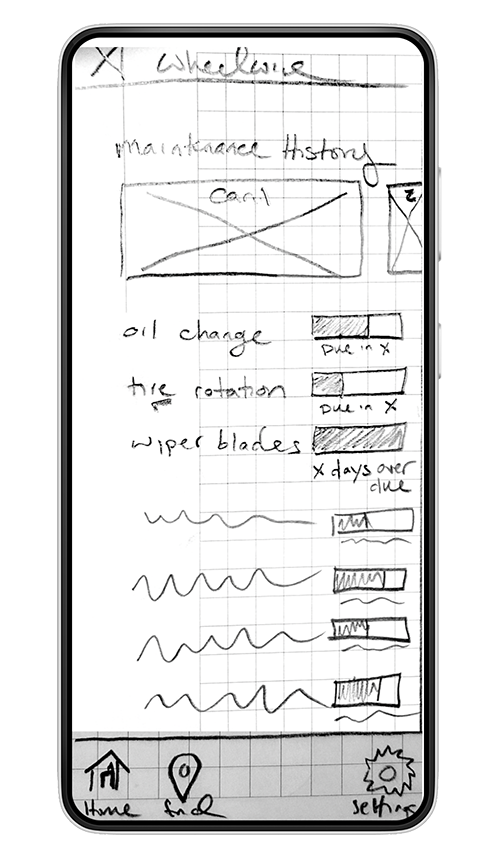 Maintenance History
Car 1
2
oil change
Due in X
tire rotation
Due in X
wiper blades
X days over
due
Home
find
settings